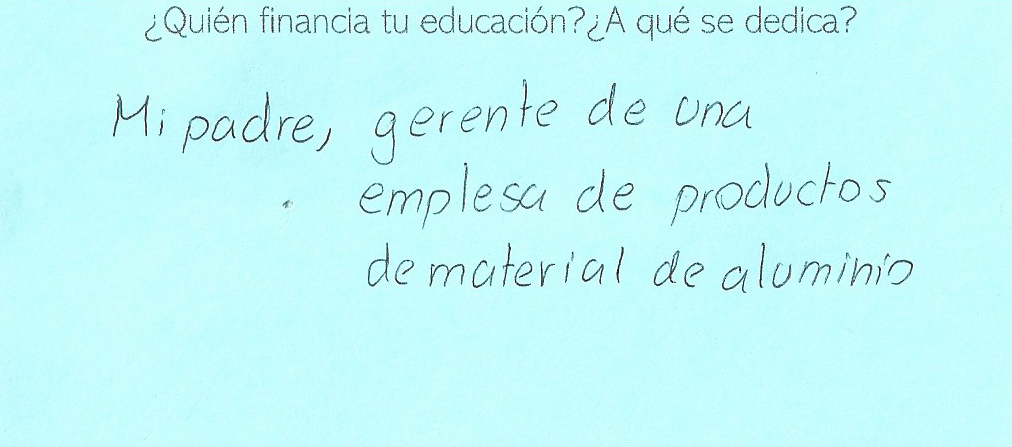 ¿Quién financia tu educación?¿A qué se dedica?
Mi padre, gerente de una
emplesa de productos
de material de aluminio